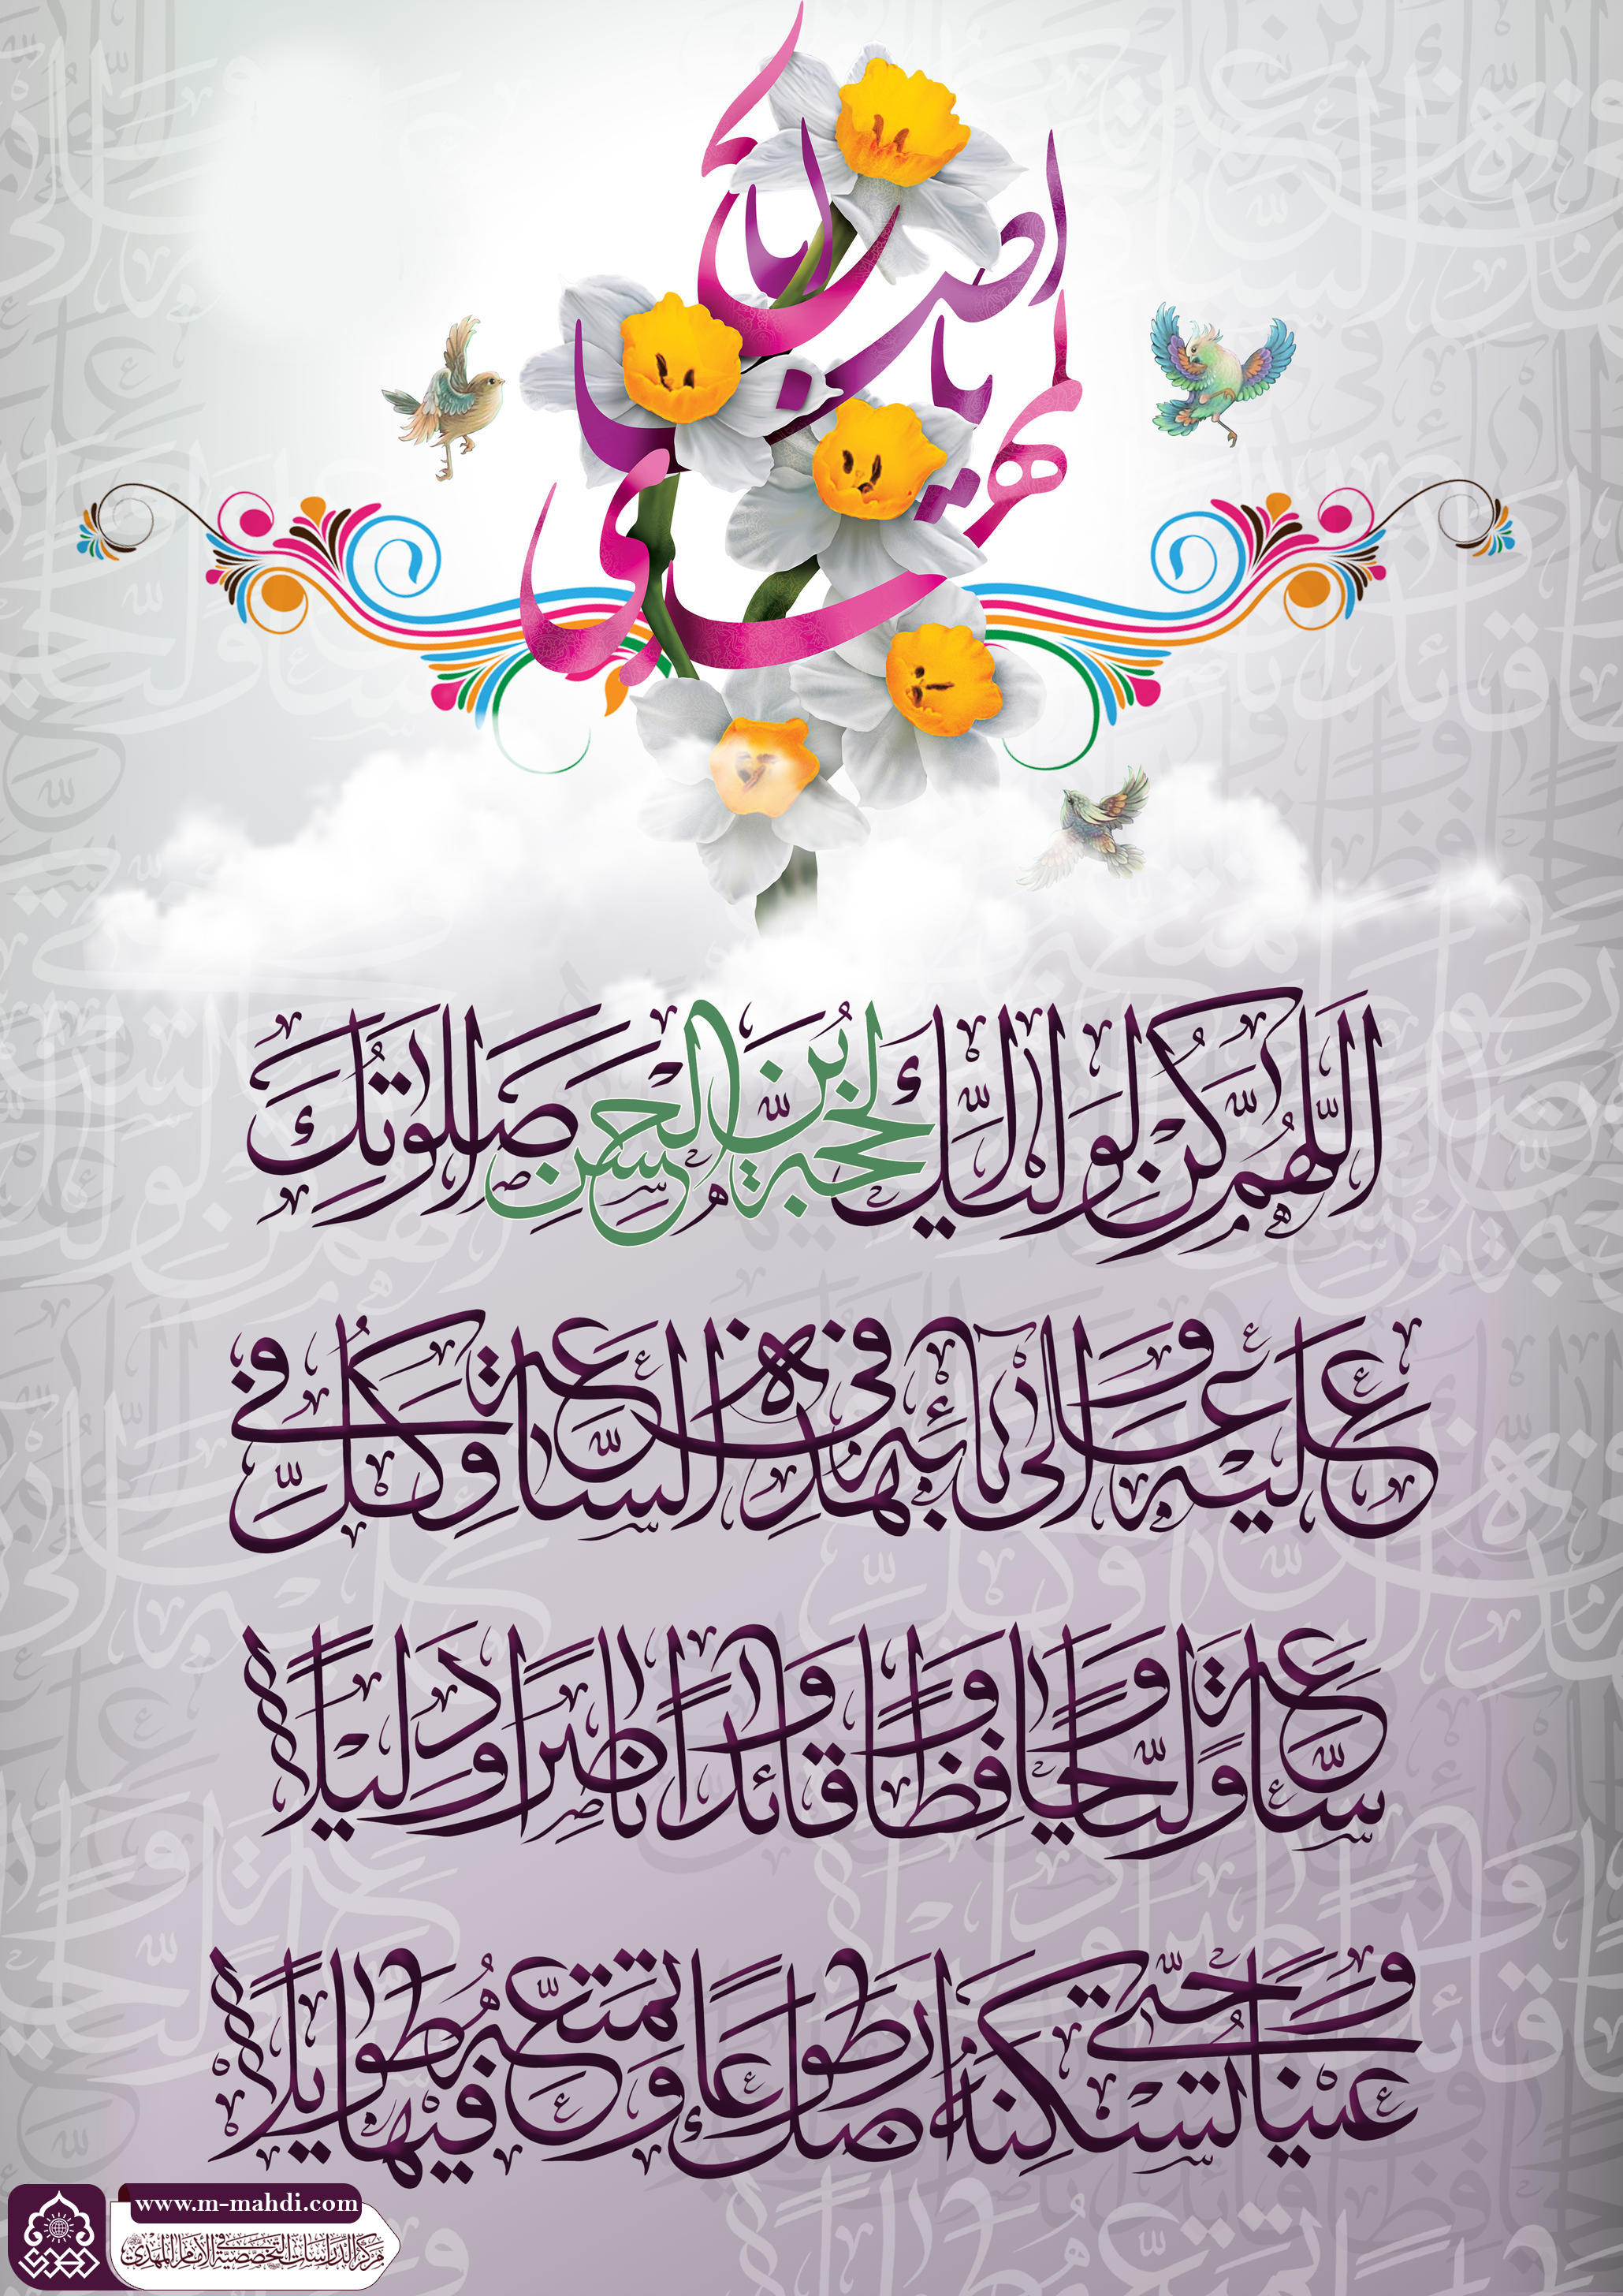 يا أبا صالح المهدي
اَللّهُمَّ كُنْ لِوَلِيِّكَ الْحُجَّةِ بْنِ الْحَسَنِ صَلَواتُكَ
عَلَيْهِ وَعَلى آبائِهِ في هذِهِ السّاعَةِ وَفي كُلِّ
ساعَةٍ وَلِيّاً وَحافِظاً وَقائِداً وَناصِراً وَدَليلاً
وَعَيْناً حَتّى تُسْكِنَهُ أَرْضَكَ طَوْعاً وَتُمَتِّعَهُ فيها طَويلاً
www.m-mahdi.com
مركز الدراسات التخصصية في الإمام المهدي